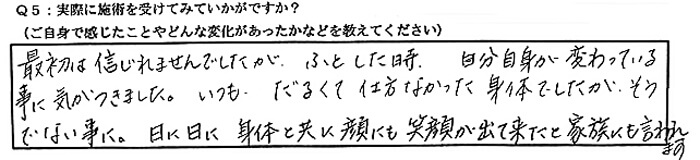 Q5：実際に施術を受けてみていかがですか？
（ご自身で感じたことやどんな変化があったかなどを教えてください）
最初は信じれませんでしたが、ふとした時、自分自身が変わっている
事に気がつきました。いつも、だるくて仕方なかった身体でしたが、そう
でない事に。日に日に身体と共に顔にも笑顔が出て来たと家族にも言われ
ます